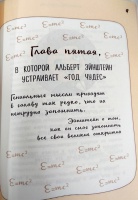 E=mc²
E=mc²
E=mc²
Глава пятая,
В КОТОРОЙ АЛЬБЕРТ ЭЙНШТЕЙН
УСТРАИВАЕТ «ГОД ЧУДЕС»
Гениальные мысли приходят
в голову так редко, что их
нетрудно запомнить.
Эйнштейн о том,
как он смог запомнить
все свои великие открытия
E=mc²
E=mc²
E=mc²